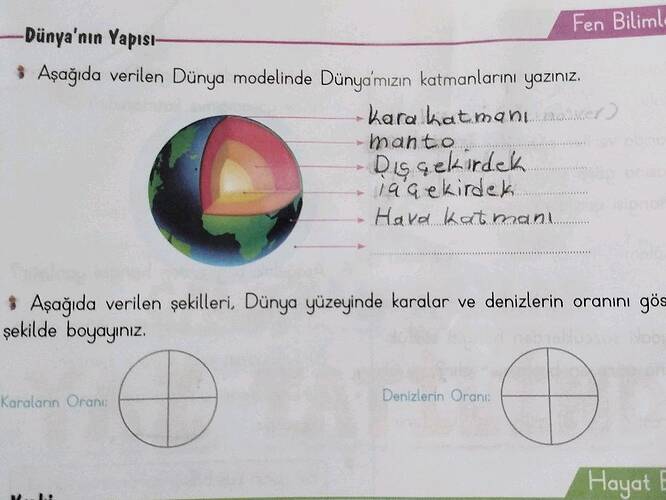 Fen Bilimle
Dünya'nın Yapısı
Aşağıda verilen Dünya modelinde Dünya'mızın katmanlarını yazınız.
kara katmanı
manto
Dış çekirdek
iç çekirdek
Hava katmanı
Aşağıda verilen şekilleri, Dünya yüzeyinde karalar ve denizlerin oranını gös
şekilde boyayınız.
Karaların Oranı:
Denizlerin Oranı:
Hayat B